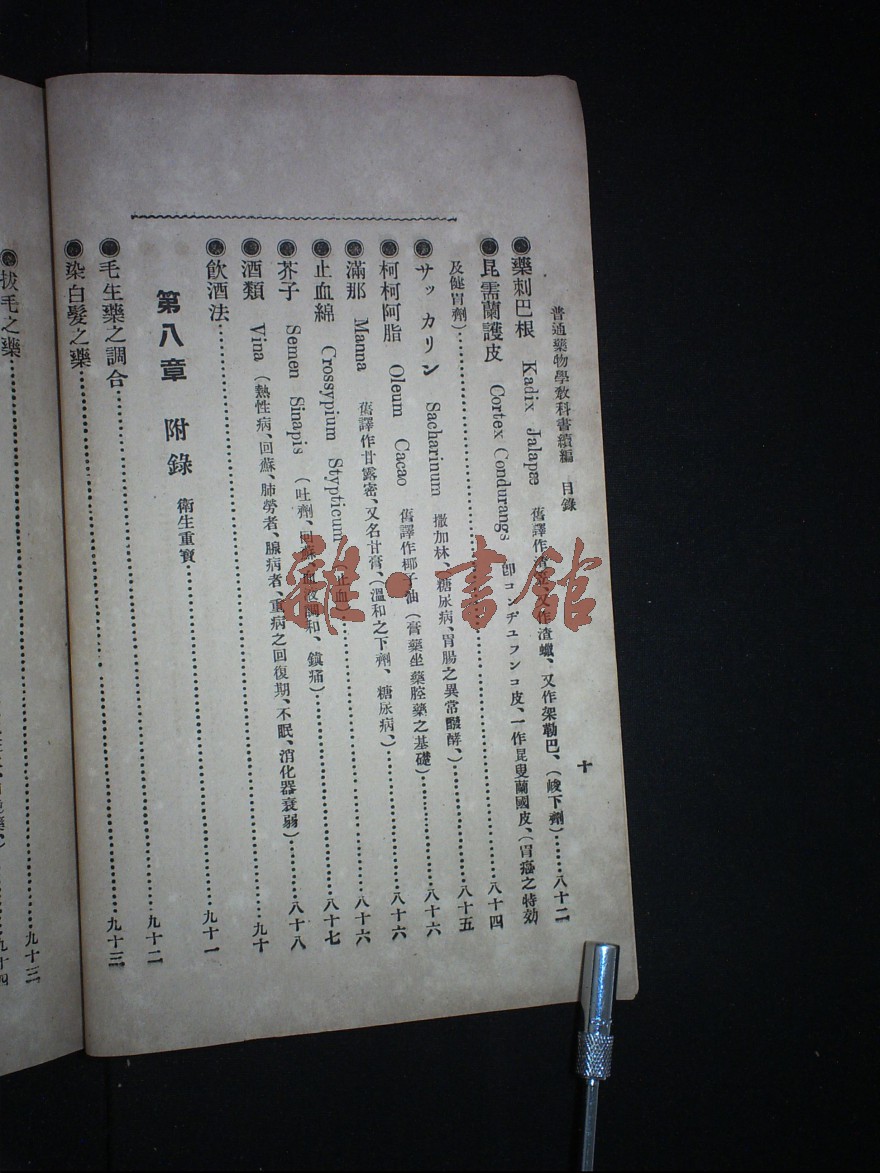 普通藥物學敎科書續編　目錄
十
●藥刺巴根　Kadix Jalapæ　舊譯作渣 又作渣蠟、又作架勒巴、（峻下劑）…八十二
●昆需蘭護皮　Cortex Condurangs　卽コンヂユランコ皮、一作昆叟蘭國皮、（胃癌之特効
及健胃劑）…八十四
●サッカリン　Sacharinum　撒加林、糖尿病、胃腸之異常醱酵、）…八十五
●柯柯阿脂　Oleum Cacao　舊譯作椰子油（膏藥坐藥腔藥之基礎）…八十六
●滿那　Manna　舊譯作甘露密、又名甘膏、（溫和之下劑、糖尿病、）…八十六
●止血綿　Crossypium Stypticum（止血）…八十七
●芥子　Semen Sinapis　（吐劑、回蘇、血液調和、鎮痛）…八十八
●酒類　Vina（熱性病、回蘇、肺勞者、腺病者、重病之回復期、不眠、消化器衰弱）…九十
●飲酒法…九十一
第八章　附錄　衛生重寳…九十二
●毛生藥之調合…九十三
●染白髮之藥…九十三
●拔毛之藥…九十四
雜·書館